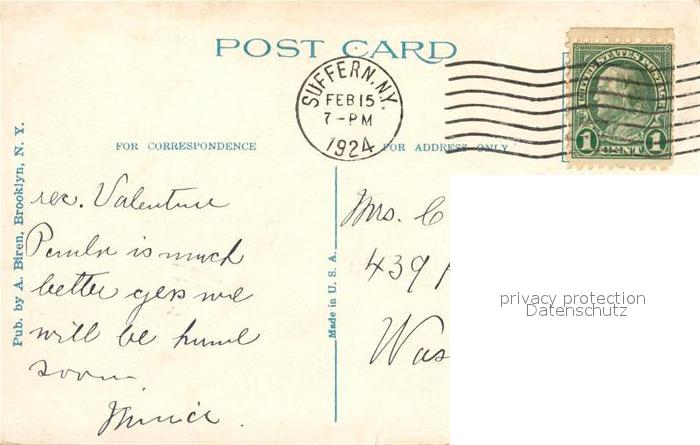 POST CARD
SUFFERN, N.Y.
FEB 15
7-PM
1924
UNITED STATES POSTAGE
1 CENT 1
FOR CORRESPONDENCE
FOR ADDRESS ONLY
Pub. by A. Biren, Brooklyn, N. Y.
Made in U. S. A.
rec. Valentine
is much
better
will be home
soon
Mrs. C
439
Was
privacy protection
Datenschutz